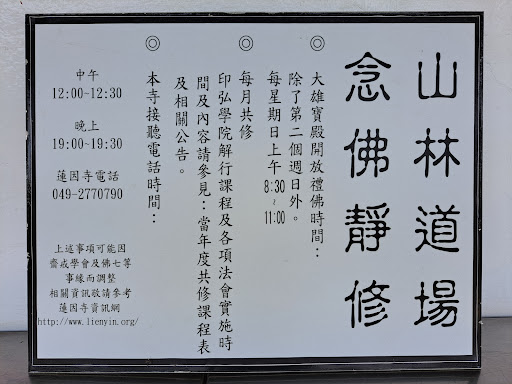 山林道場
念佛靜修
◎大雄寶殿開放禮佛時間：
除了第二個週日外。
每星期日上午8:30~11:00
◎每月共修
印弘學院解行課程及各項法會實施時
間及內容請參見：當年度共修課程表
及相關公告。
◎本寺接聽電話時間：
中午
12:00~12:30
晚上
19:00~19:30
蓮因寺電話
049-2770790
上述事項可能因
齋戒學會及佛七等
事緣而調整
相關資訊敬請參考
蓮因寺資訊網
http://www.lienyin.org/